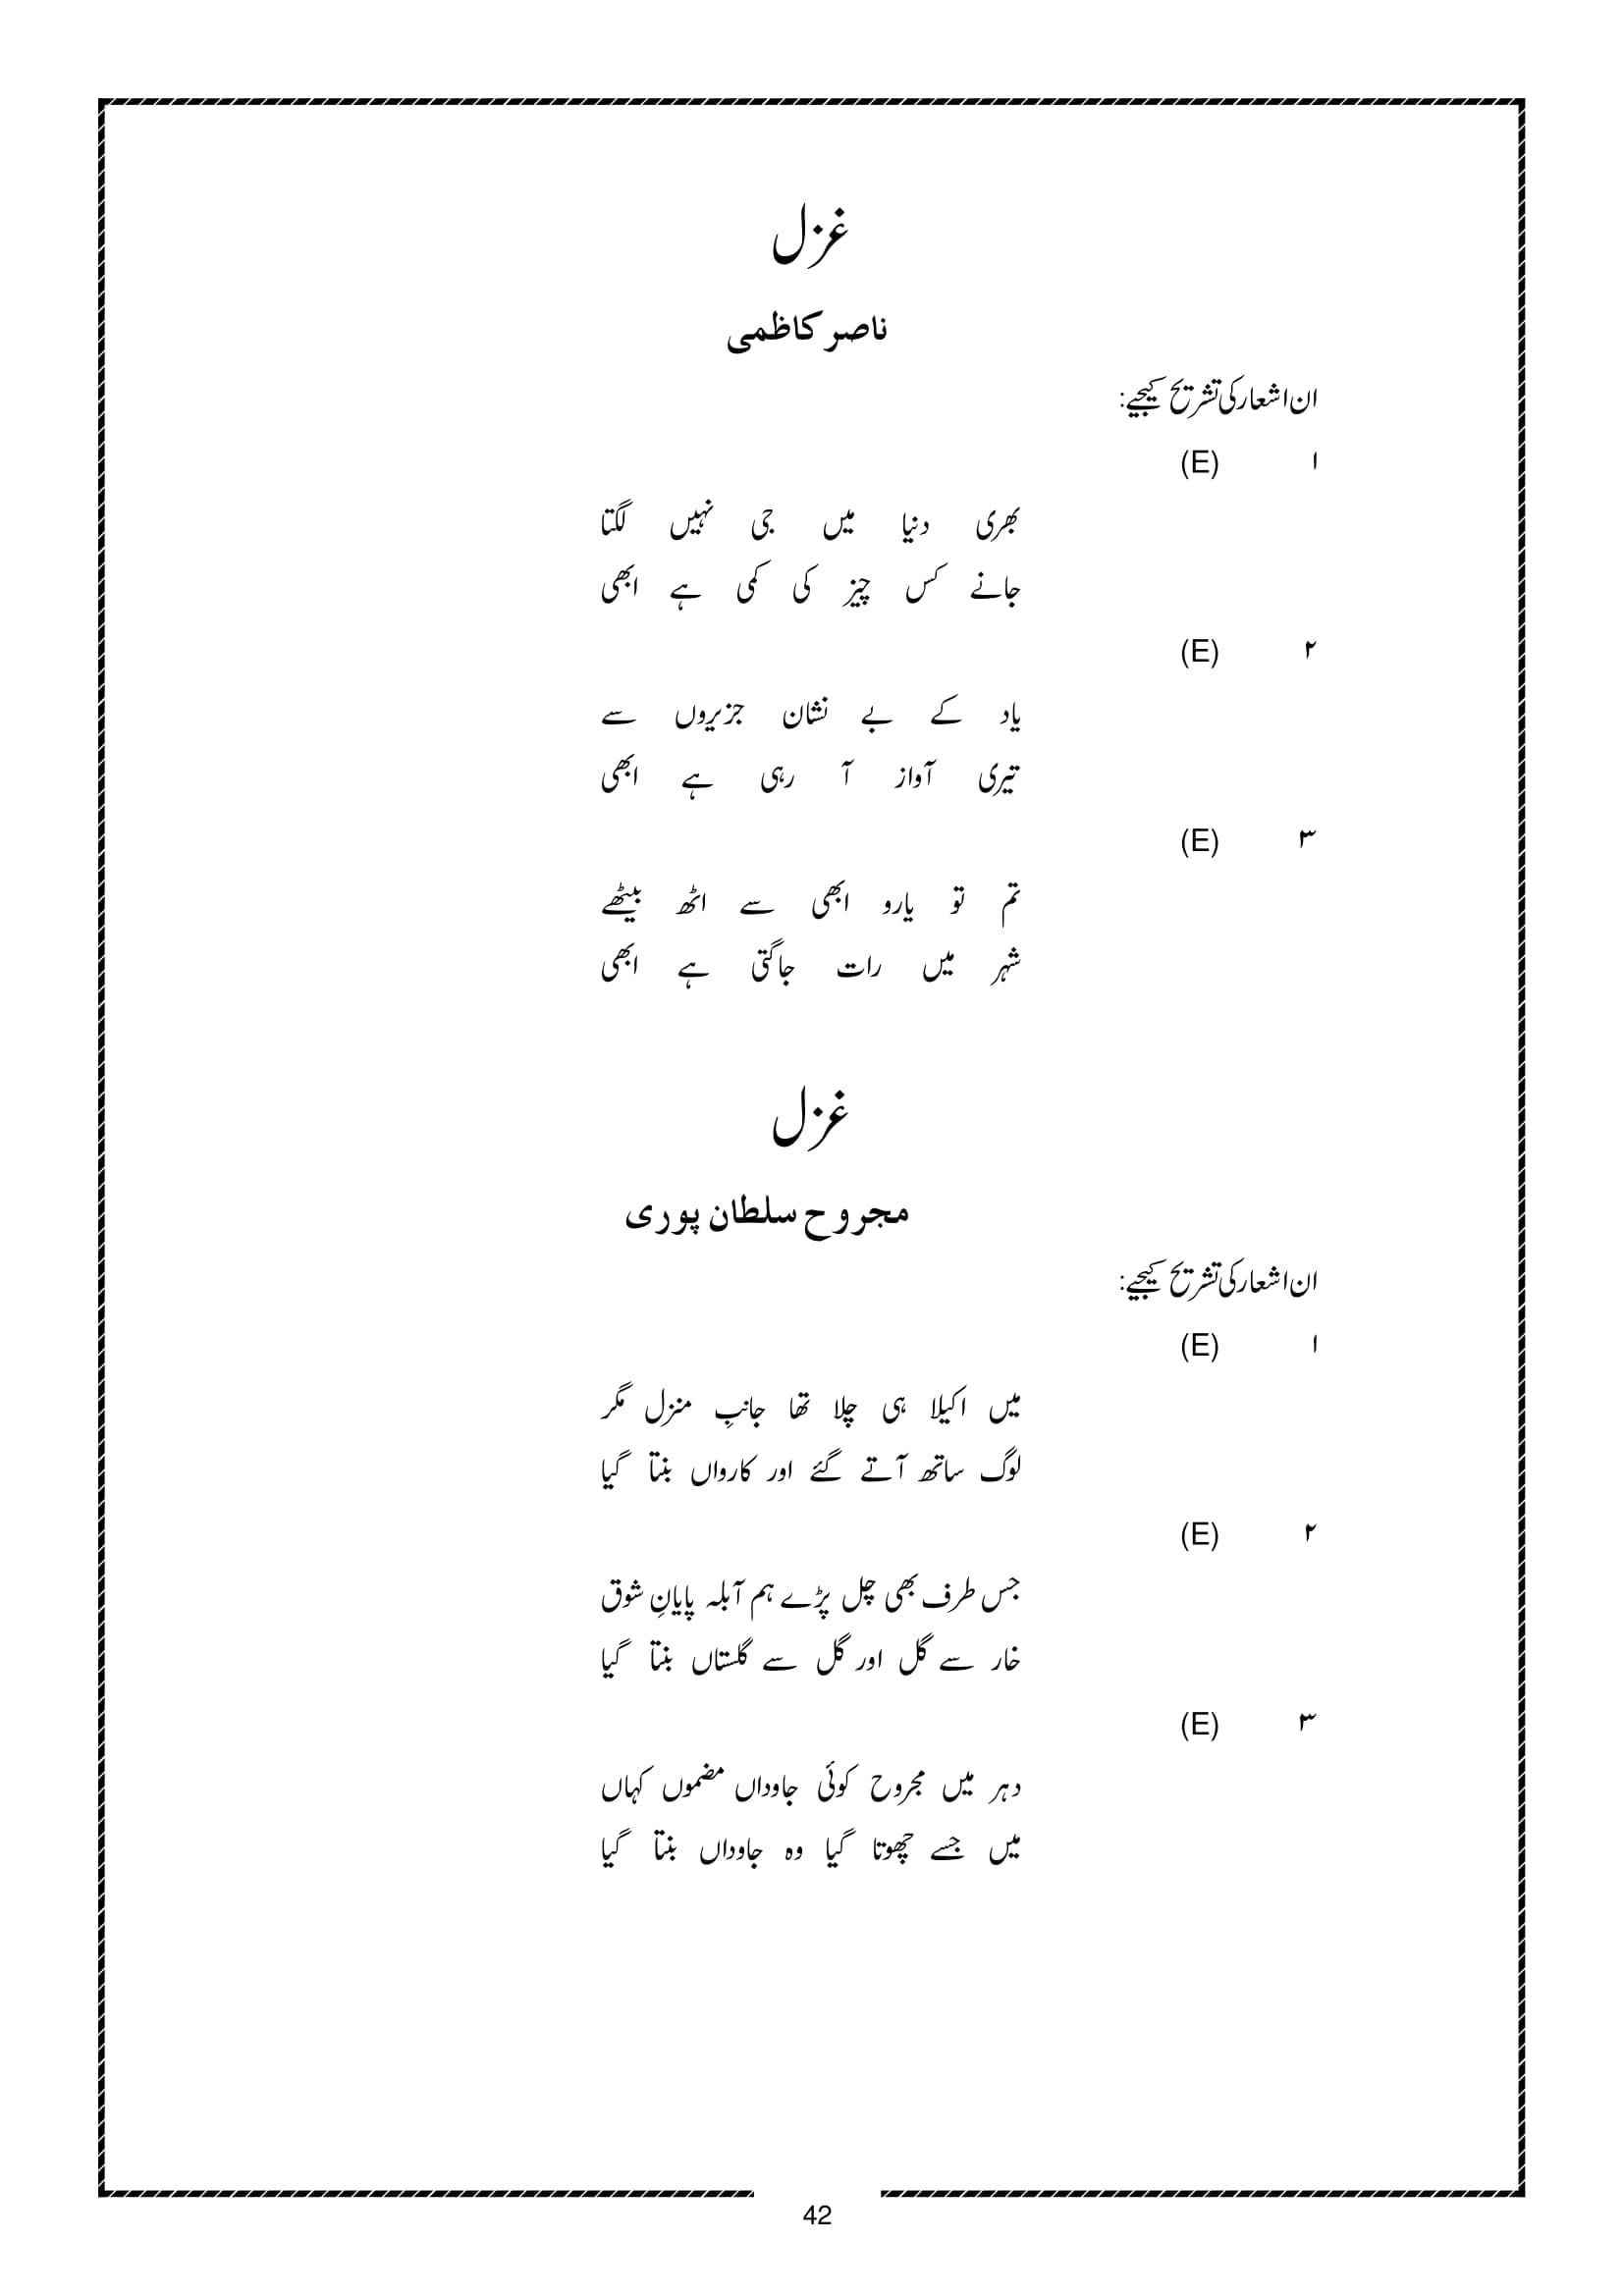 غزل
ناصر کاظمی
ان اشعار کی تشریح کیجیے:
۱ (E)
بھری دنیا میں جی نہیں لگتا
جانے کس چیز کی کمی ہے ابھی
۲ (E)
یاد کے بے نشان جزیروں سے
تیری آواز آ رہی ہے ابھی
۳ (E)
تم تو یارو ابھی سے اٹھ بیٹھے
شہر میں رات جاگتی ہے ابھی
غزل
مجروح سلطان پوری
ان اشعار کی تشریح کیجیے:
۱ (E)
میں اکیلا ہی چلا تھا جانبِ منزل مگر
لوگ ساتھ آتے گئے اور کارواں بنتا گیا
۲ (E)
جس طرف بھی چل پڑے ہم آبلہ پایانِ شوق
خار سے گل اور گل سے گلستاں بنتا گیا
۳ (E)
دہر میں مجروح کوئی جاوداں مضموں کہاں
میں جسے چھوتا گیا وہ جاوداں بنتا گیا
42